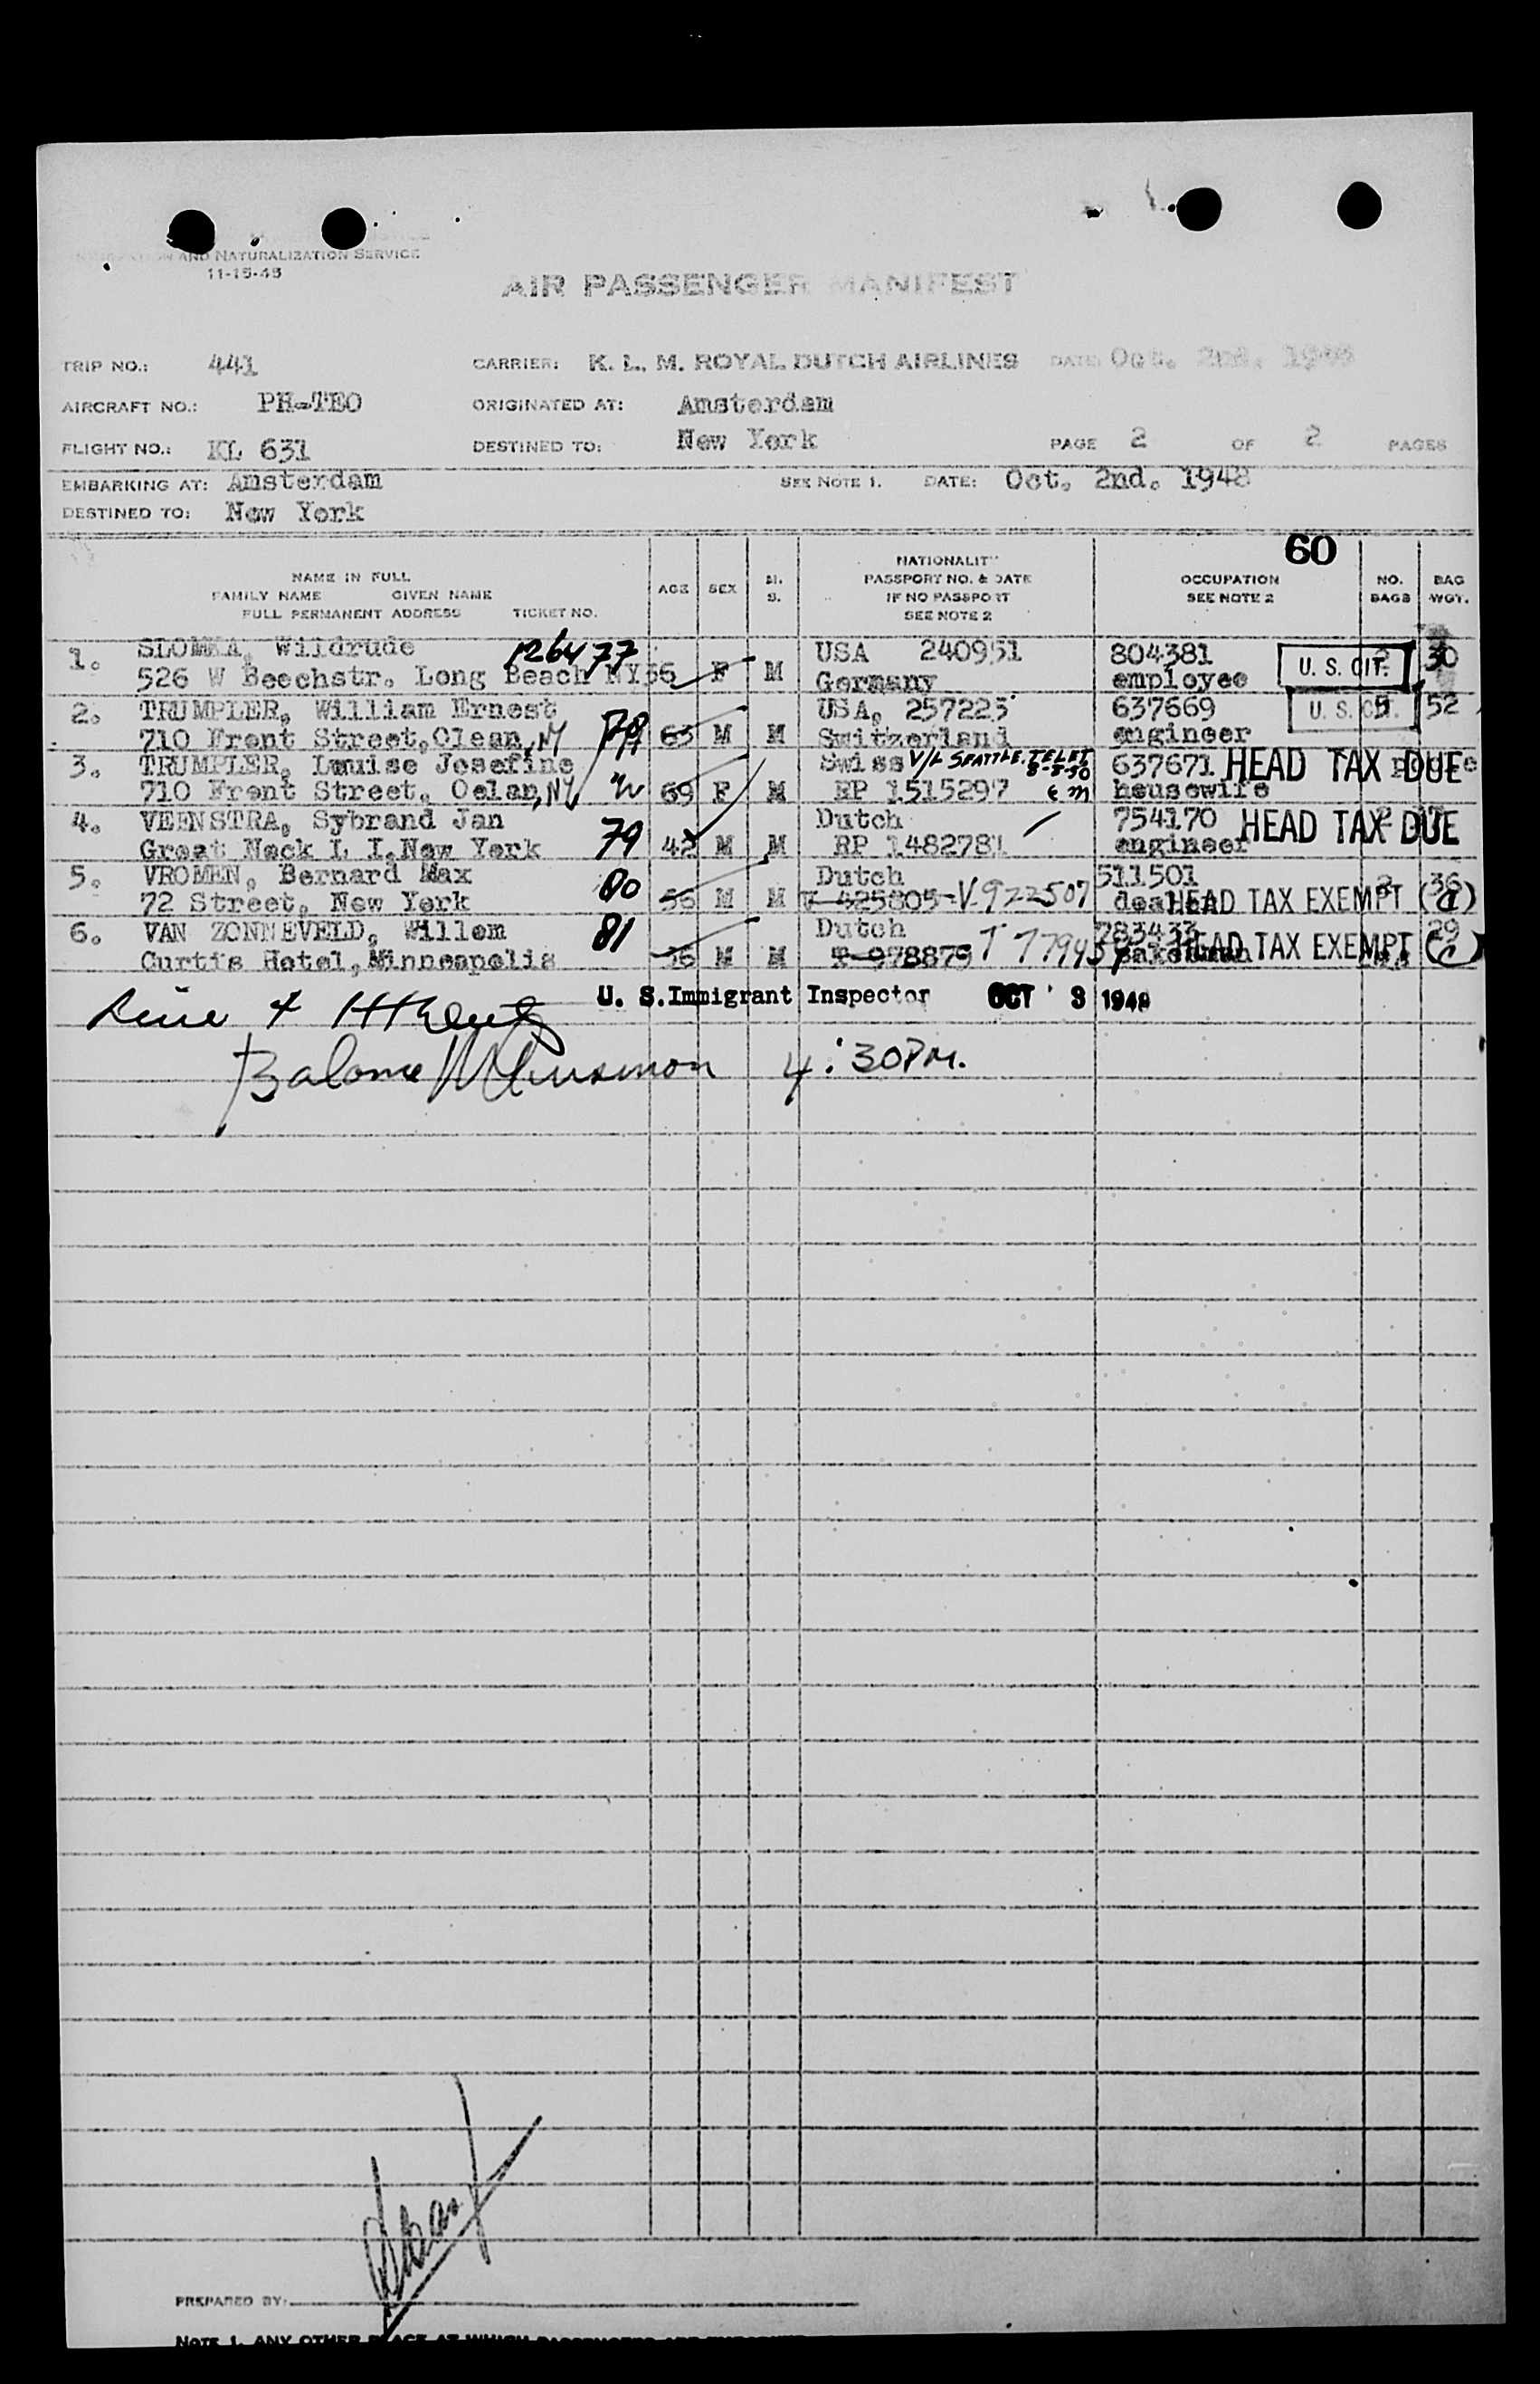 AND NATURALIZATION SERVICE
11-15-45
AIR PASSENGER MANIFEST
TRIP NO.: 441 CARRIER: K. L. M. ROYAL DUTCH AIRLINES DATE: Oct. 2nd. 1948
AIRCRAFT NO.: PH-TEO ORIGINATED AT: Amsterdam
FLIGHT NO.: KL 631 DESTINED TO: New York PAGE 2 OF 2 PAGES
EMBARKING AT: Amsterdam SEE NOTE 1. DATE: Oct. 2nd. 1948
DESTINED TO: New York
60
NAME IN FULL
FAMILY NAME GIVEN NAME
FULL PERMANENT ADDRESS TICKET NO.
AGE SEX M. S.
NATIONALITY
PASSPORT NO. & DATE
IF NO PASSPORT
SEE NOTE 2
OCCUPATION
SEE NOTE 2
NO. BAGS
BAG WGT.
1. SLOMKA, Wildrude 126477 USA 240951 804381 U. S. CIT. 30
526 W Beechstr. Long Beach NY 56 F M Germany employee
2. TRUMPLER, William Ernest 78 USA, 257223 637669 U. S. CIT. 52
710 Front Street, Olean, NY 63 M M Switzerland engineer
3. TRUMPLER, Louise Josefine Swiss V/L SEATTLE. 8-8-50 637671 HEAD TAX DUE
710 Front Street, Oelan, NY 69 F M RP 1515297 housewife
4. VEENSTRA, Sybrand Jan 79 Dutch 754170 HEAD TAX DUE
Great Neck L I, New York 42 M M RP 1482781 engineer
5. VROMEN, Bernard Max 80 Dutch 511501 36
72 Street, New York 56 M M V 425805 - V.922507 dealer HEAD TAX EXEMPT (d)
6. VAN ZONNEVELD, Willem 81 Dutch 783433 29
Curtis Hotel, Minneapolis 36 M M T 978879 T 779434 HEAD TAX EXEMPT (c)
U. S. Immigrant Inspector OCT 3 1948
4:30 PM.
PREPARED BY:
NOTE 1. ANY OTHER PLACE AT WHICH PASSENGERS ARE